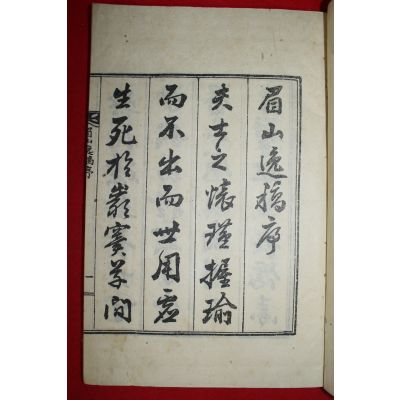 眉山逸稿序
夫士之懷瑾握瑜
而不出而世用處
生死於巖竇草間
眉山逸稿序
一